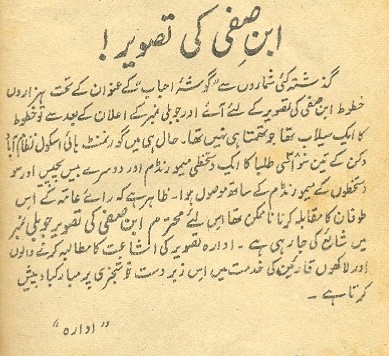 ابن صفی کی تصویر!
گذشتہ کئی شماروں سے "گوشۂ احباب" کے عنوان کے تحت ہزاروں
خطوط ابن صفی کی تصویر کے لئے آئے اور جوبلی نمبر کے اعلان کے بعد سے تو خطوط
کا ایک سیلاب تھا جو تھمتا ہی نہیں تھا۔ حال ہی میں گورنمنٹ ہائی اسکول نظام آباد
دکن کے تین سو اسی طلبا کا ایک دستخطی میمورنڈم اور دوسرے بیس پچیس اور سو
دستخطوں کے میمورنڈم کے ساتھ موصول ہوا۔ ظاہر ہے کہ رائے عامہ کے اس
طوفان کا مقابلہ کرنا ناممکن تھا اس لئے محترم ابن صفی کی تصویر جوبلی نمبر
میں شائع کی جا رہی ہے۔ ادارہ تصویر کی اشاعت کا مطالبہ کرنے والوں
اور لاکھوں قارئین کی خدمت میں اس زبردست خوشخبری پر مبارکباد پیش
کرتا ہے۔
"ادارہ"